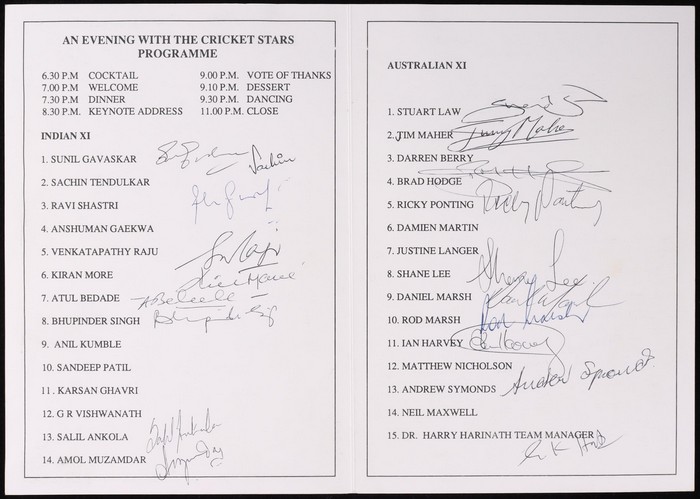 AN EVENING WITH THE CRICKET STARS
PROGRAMME
6.30 P.M COCKTAIL 9.00 P.M. VOTE OF THANKS
7.00 P.M WELCOME 9.10 P.M. DESSERT
7.30 P.M DINNER 9.30 P.M. DANCING
8.30 P.M. KEYNOTE ADDRESS 11.00 P.M. CLOSE
INDIAN XI
1. SUNIL GAVASKAR
Sachin
2. SACHIN TENDULKAR
3. RAVI SHASTRI
4. ANSHUMAN GAEKWA
5. VENKATAPATHY RAJU
6. KIRAN MORE
7. ATUL BEDADE
8. BHUPINDER SINGH
Bhupinder
9. ANIL KUMBLE
10. SANDEEP PATIL
11. KARSAN GHAVRI
12. G R VISHWANATH
13. SALIL ANKOLA
14. AMOL MUZAMDAR
AUSTRALIAN XI
1. STUART LAW
2. TIM MAHER
Jimmy Maher
3. DARREN BERRY
4. BRAD HODGE
5. RICKY PONTING
Ricky Ponting
6. DAMIEN MARTIN
7. JUSTINE LANGER
8. SHANE LEE
Shane Lee
9. DANIEL MARSH
10. ROD MARSH
Rod Marsh
11. IAN HARVEY
12. MATTHEW NICHOLSON
13. ANDREW SYMONDS
Andrew Symonds
14. NEIL MAXWELL
15. DR. HARRY HARINATH TEAM MANAGER